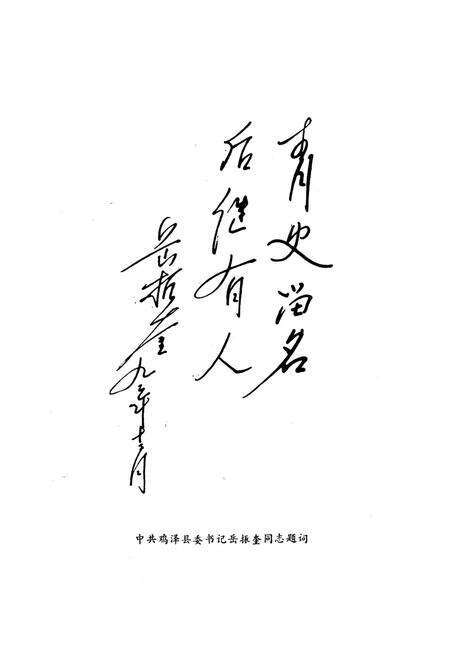 青史留名
后继有人
岳振奎
九三年十二月
中共鸡泽县委书记岳振奎同志题词